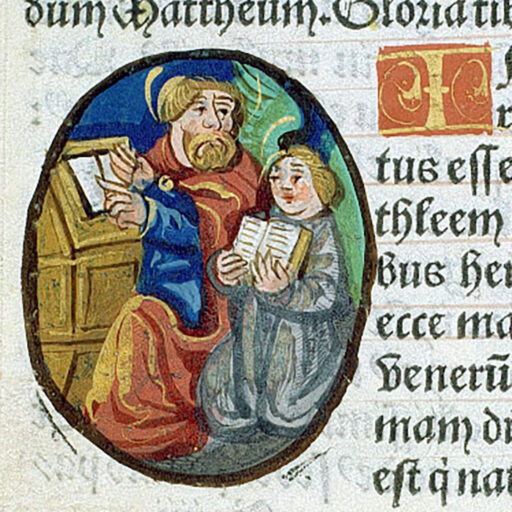 dum Mattheum. Gloria tib
I
tus esse
thleem
bus her
ecce ma
Venerū
mam du
est q̇ nat